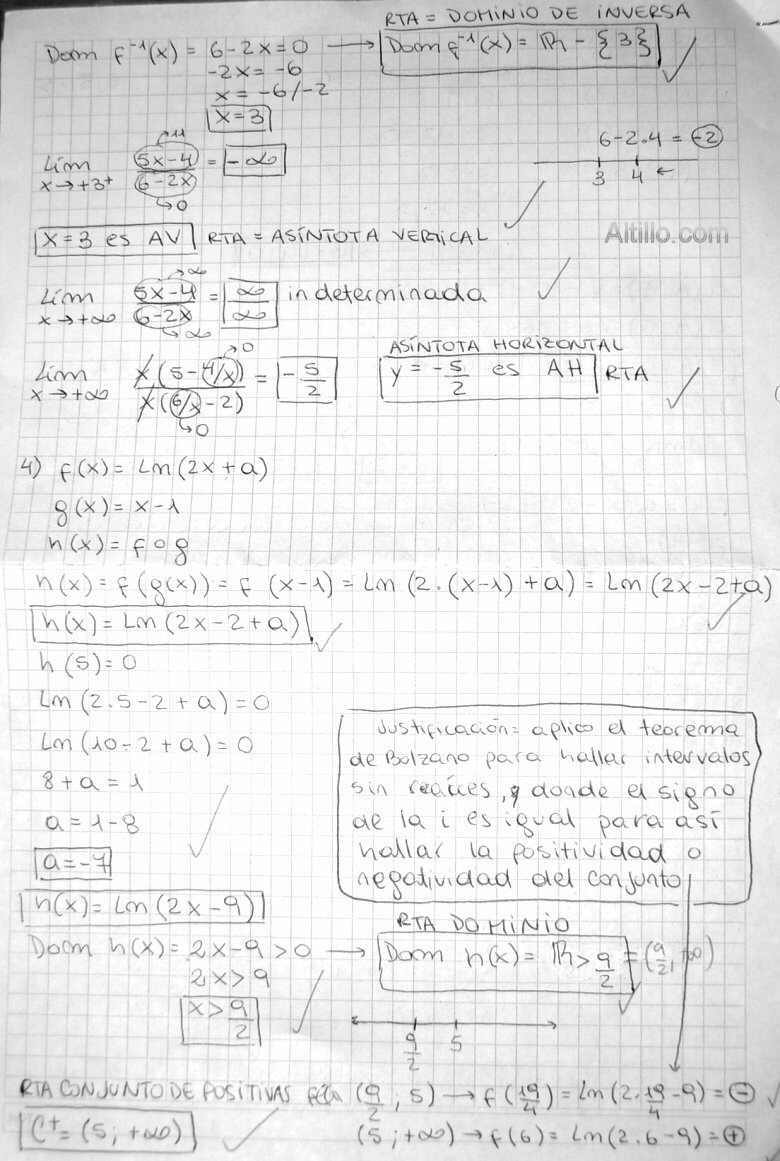 RTA = DOMINIO DE INVERSA
Dom f⁻¹(x) = 6-2x=0 → Dom f⁻¹(x) = ℝ - {3}
-2x = -6
x = -6/-2
x=3
→11
Lim x→+3⁺ 5x-4 / 6-2x = -∞
→0
6-2.4 = -2
3 4 ←
x=3 es AV RTA = ASÍNTOTA VERTICAL
Altillo.com
→∞
Lim x→+∞ 5x-4 / 6-2x = ∞/∞ indeterminada
→∞
ASÍNTOTA HORIZONTAL
→0
Lim x→+∞ x(5-4/x) / x(6/x-2) = -5/2 y = -5/2 es AH RTA
→0
4) f(x) = Ln(2x+a)
g(x) = x-1
h(x) = f o g
h(x) = f(g(x)) = f (x-1) = Ln(2.(x-1)+a) = Ln(2x-2+a)
h(x) = Ln(2x-2+a)
h(5)=0
Ln(2.5-2+a)=0
Ln(10-2+a)=0
8+a=1
a=1-8
a=-7
Justificación = aplico el teorema
de Bolzano para hallar intervalos
sin raíces, y donde el signo
de la i es igual para así
hallar la positividad o
negatividad del conjunto
h(x) = Ln(2x-9)
RTA DOMINIO
Dom h(x) = 2x-9>0 → Dom h(x) = ℝ > 9/2 = (9/2, +∞)
2x>9
x > 9/2
9/2 5
RTA CONJUNTO DE POSITIVAS (9/2 ; 5) → f(19/4) = Ln(2.19/4-9) = ⊖
C⁺ = (5; +∞) (5; +∞) → f(6) = Ln(2.6-9) = ⊕